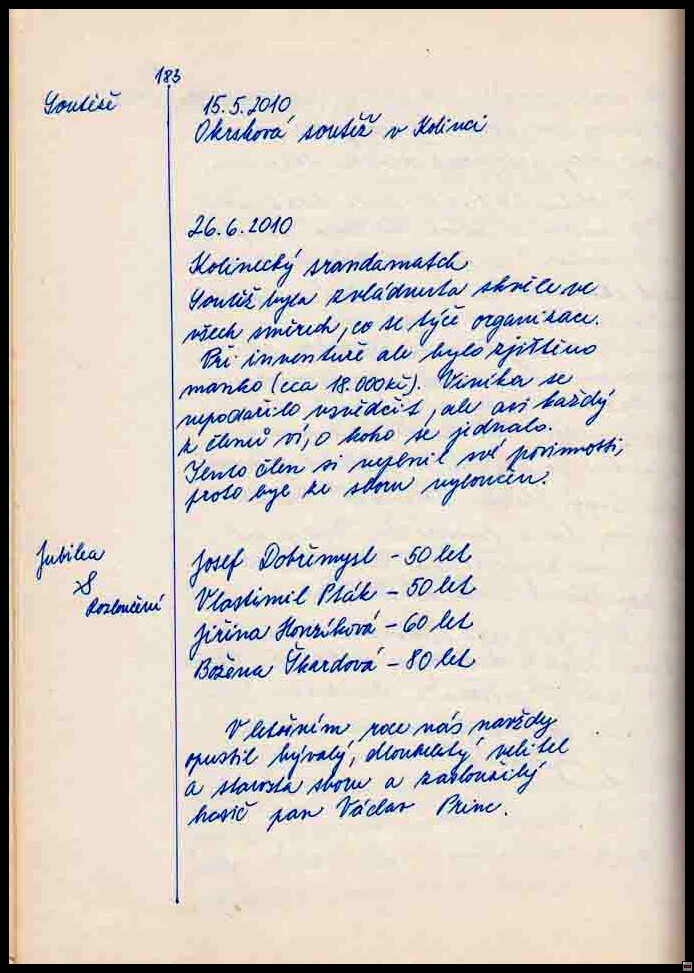 183
Soutěže
15.5.2010
Okrsková soutěž v Kolinci
26.6.2010
Kolinecký srandamatch
Soutěž byla zvládnuta skvěle ve
všech směrech, co se týče organizace.
Při inventuře ale bylo zjištěno
manko (cca 18.000 kč). Viníka se
nepodařilo usvědčit, ale asi každý
z členů ví, o koho se jednalo.
Tento člen si neplnil své povinnosti,
proto byl ze sboru vyloučen.
Jubilea
&
Rozloučení
Josef Dobřemysl - 50 let
Vlastimil Pták - 50 let
Jiřina Honzíková - 60 let
Božena Škardová - 80 let
V letošním roce nás navždy
opustil bývalý, dlouholetý velitel
a starosta sboru a zasloužilý
hasič pan Václav Princ.